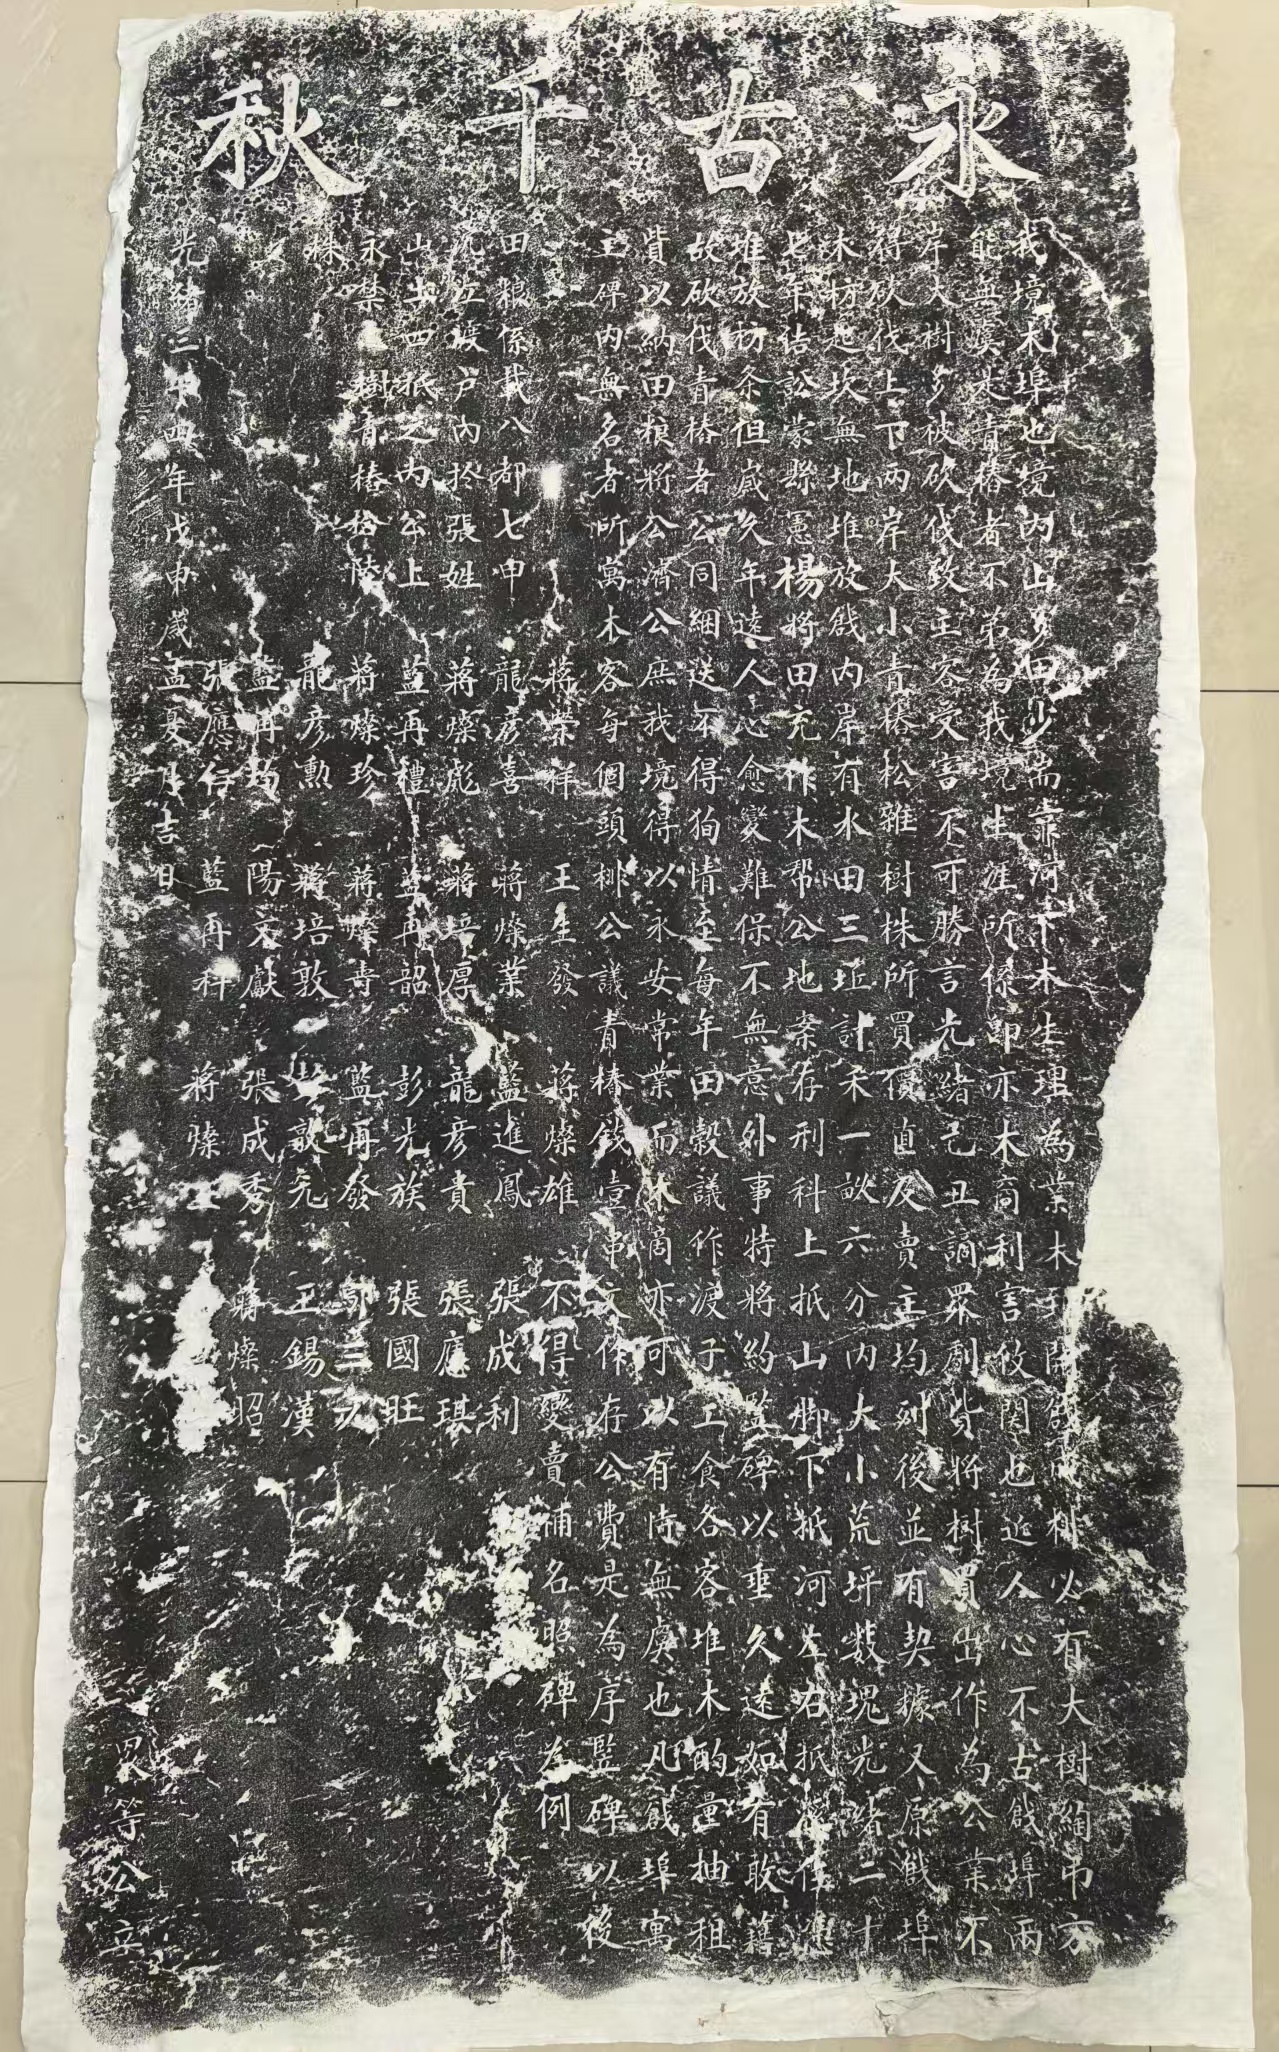 永古千秋
我境木埠也境內山多田少端靠河下木生理為業木開創成排必有大樹綯吊方
能無虞是青樁者不第為我境生涯所係即亦木商利害攸関也近人心不古戧埠兩
岸大樹多被砍伐致主客受害不可勝言光緒己丑謫眾劇貲將樹買出作為公業不
得砍伐上下兩岸大小青樁松雜樹株所買價直及賣主均列後並有契據又原戧埠
木枋起坎無地堆放戧內岸有水田三坵計禾一畝六分內大小荒坪数塊光緒二十
七年結訟蒙縣憲楊將田充作木帮公地案存刑科上抵山脚下抵河左右抵溪
堆放枋条但歲久年遠人心愈變難保不無意外事特將約竪碑以垂久遠如有敢藉
故砍伐青樁者公同綑送不得狥情至每年田穀議作渡子工食各客堆木酌量抽租
貲以納田粮將公濟公庶我境得以永安常業而木商亦可以有恃無虞也凡戧埠寓
主碑內無名者所寓木客每個頭排公議青樁錢壹串文作存公費是為序竪碑以後
蔣榮祥 王生發 蔣燦雄 不得變賣補名昭碑為例
田粮係載八都七甲 龍彥喜 蔣燦業 藍進鳳 張成利
沅江嫒户內於張姓 蔣燦彪 蔣培厚 龍彥貴 張應琪
山土四抵之內公上 藍再禮 藍再韶 彭光族 張國旺
永禁樹青樁拾陸 蔣燦珍 蔣燦壽 藍再發 郭三
株 龍彥勳 蔣培敦 彭敦堯 王錫漢
藍再均 陽文獻 張成秀 蔣燦昭
張應行 藍再科 蔣燦
光緒三十四年戊申歲孟夏月吉日 眾等公立